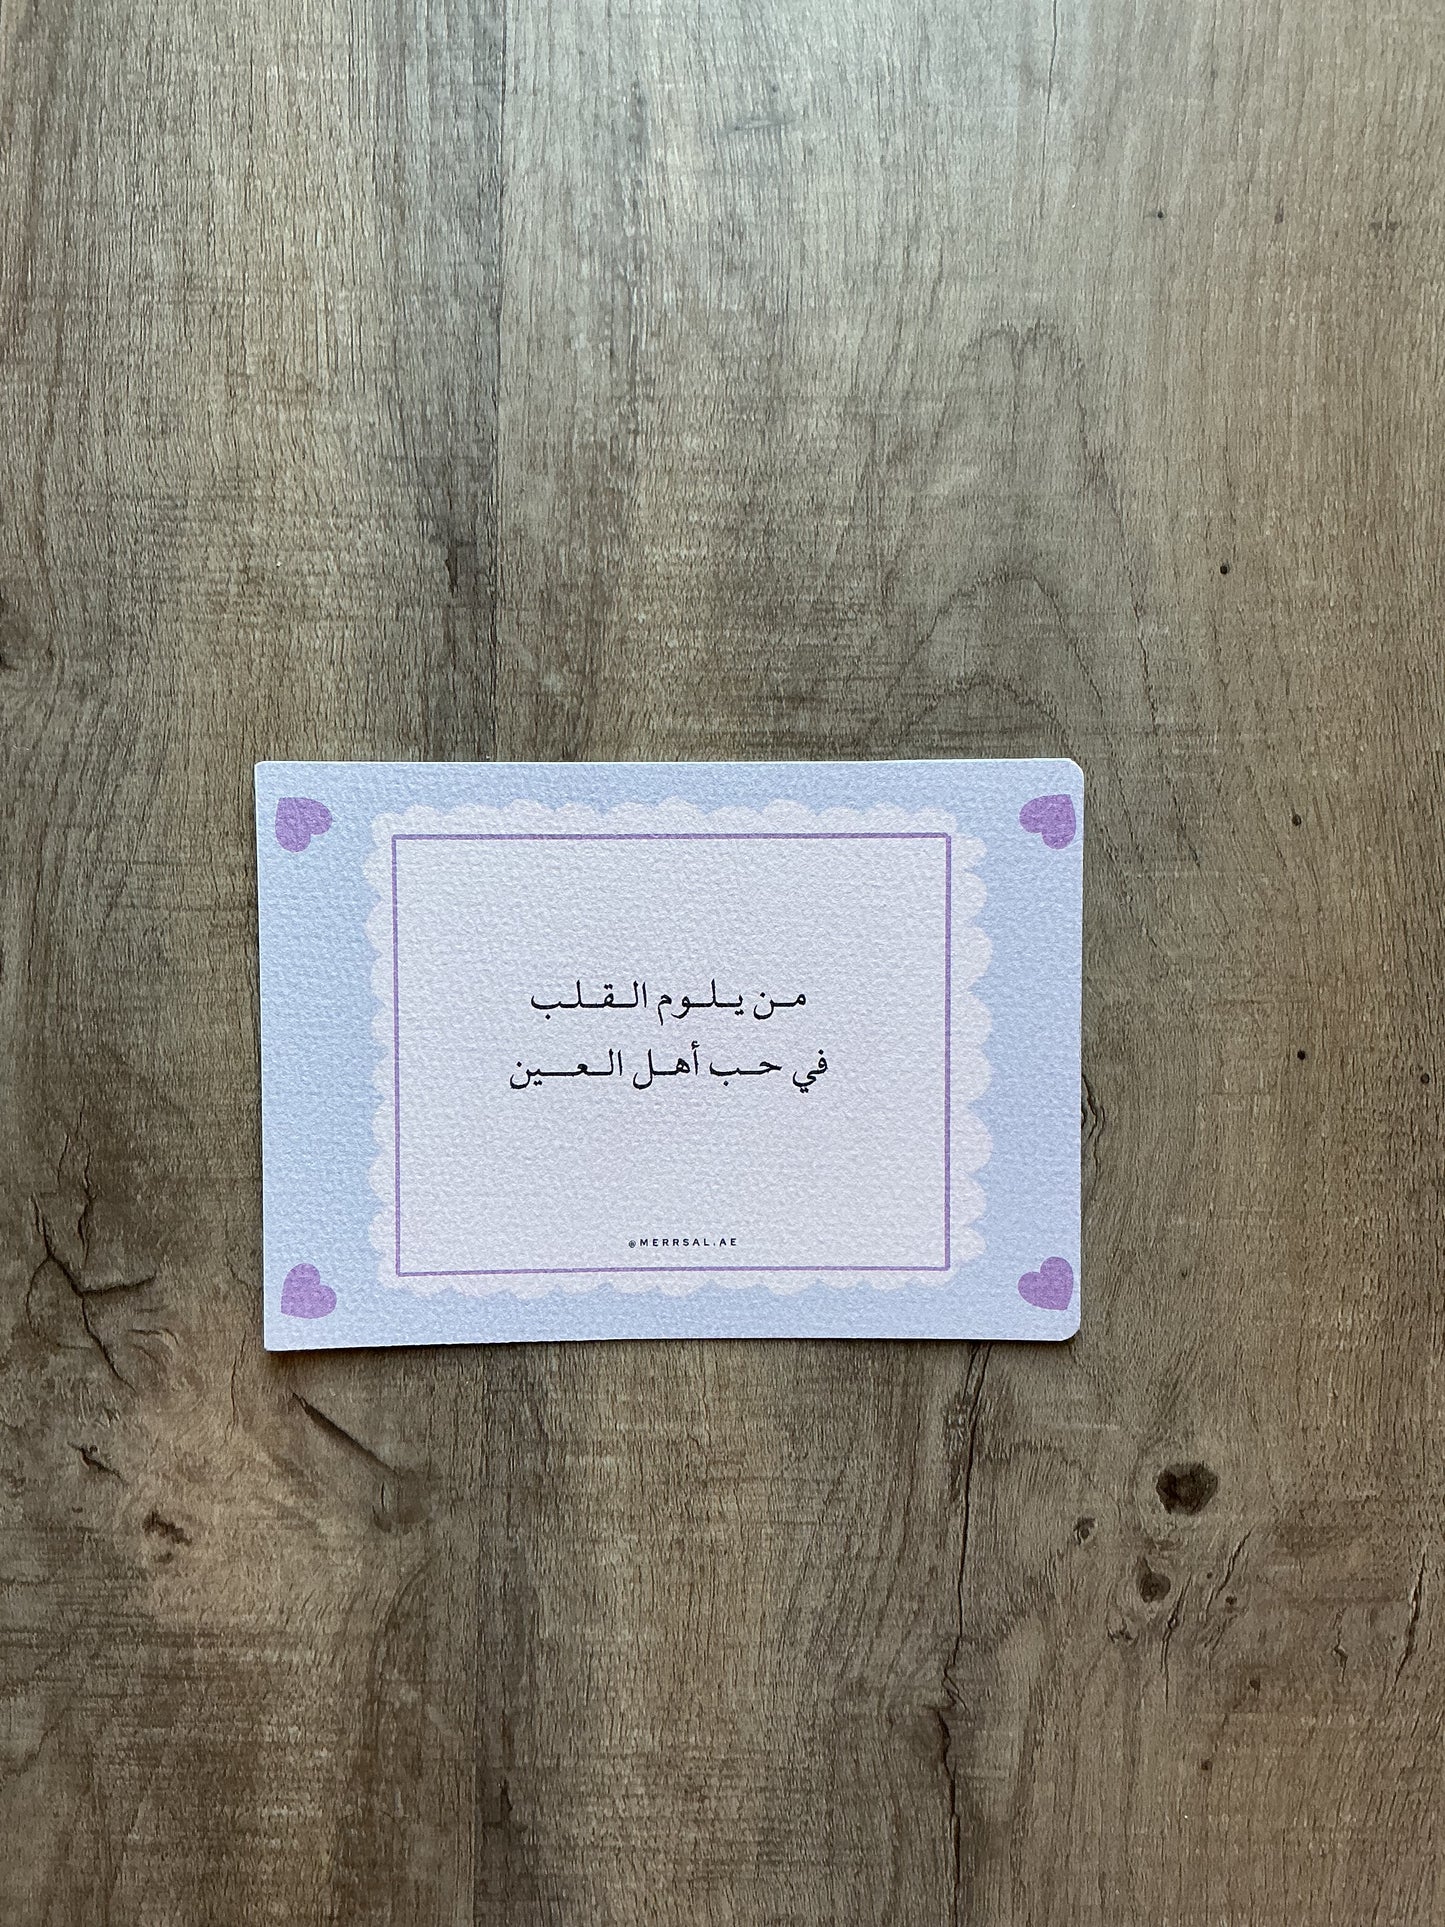 من يلوم القلب
في حب أهل العين
@MERRSAL.AE